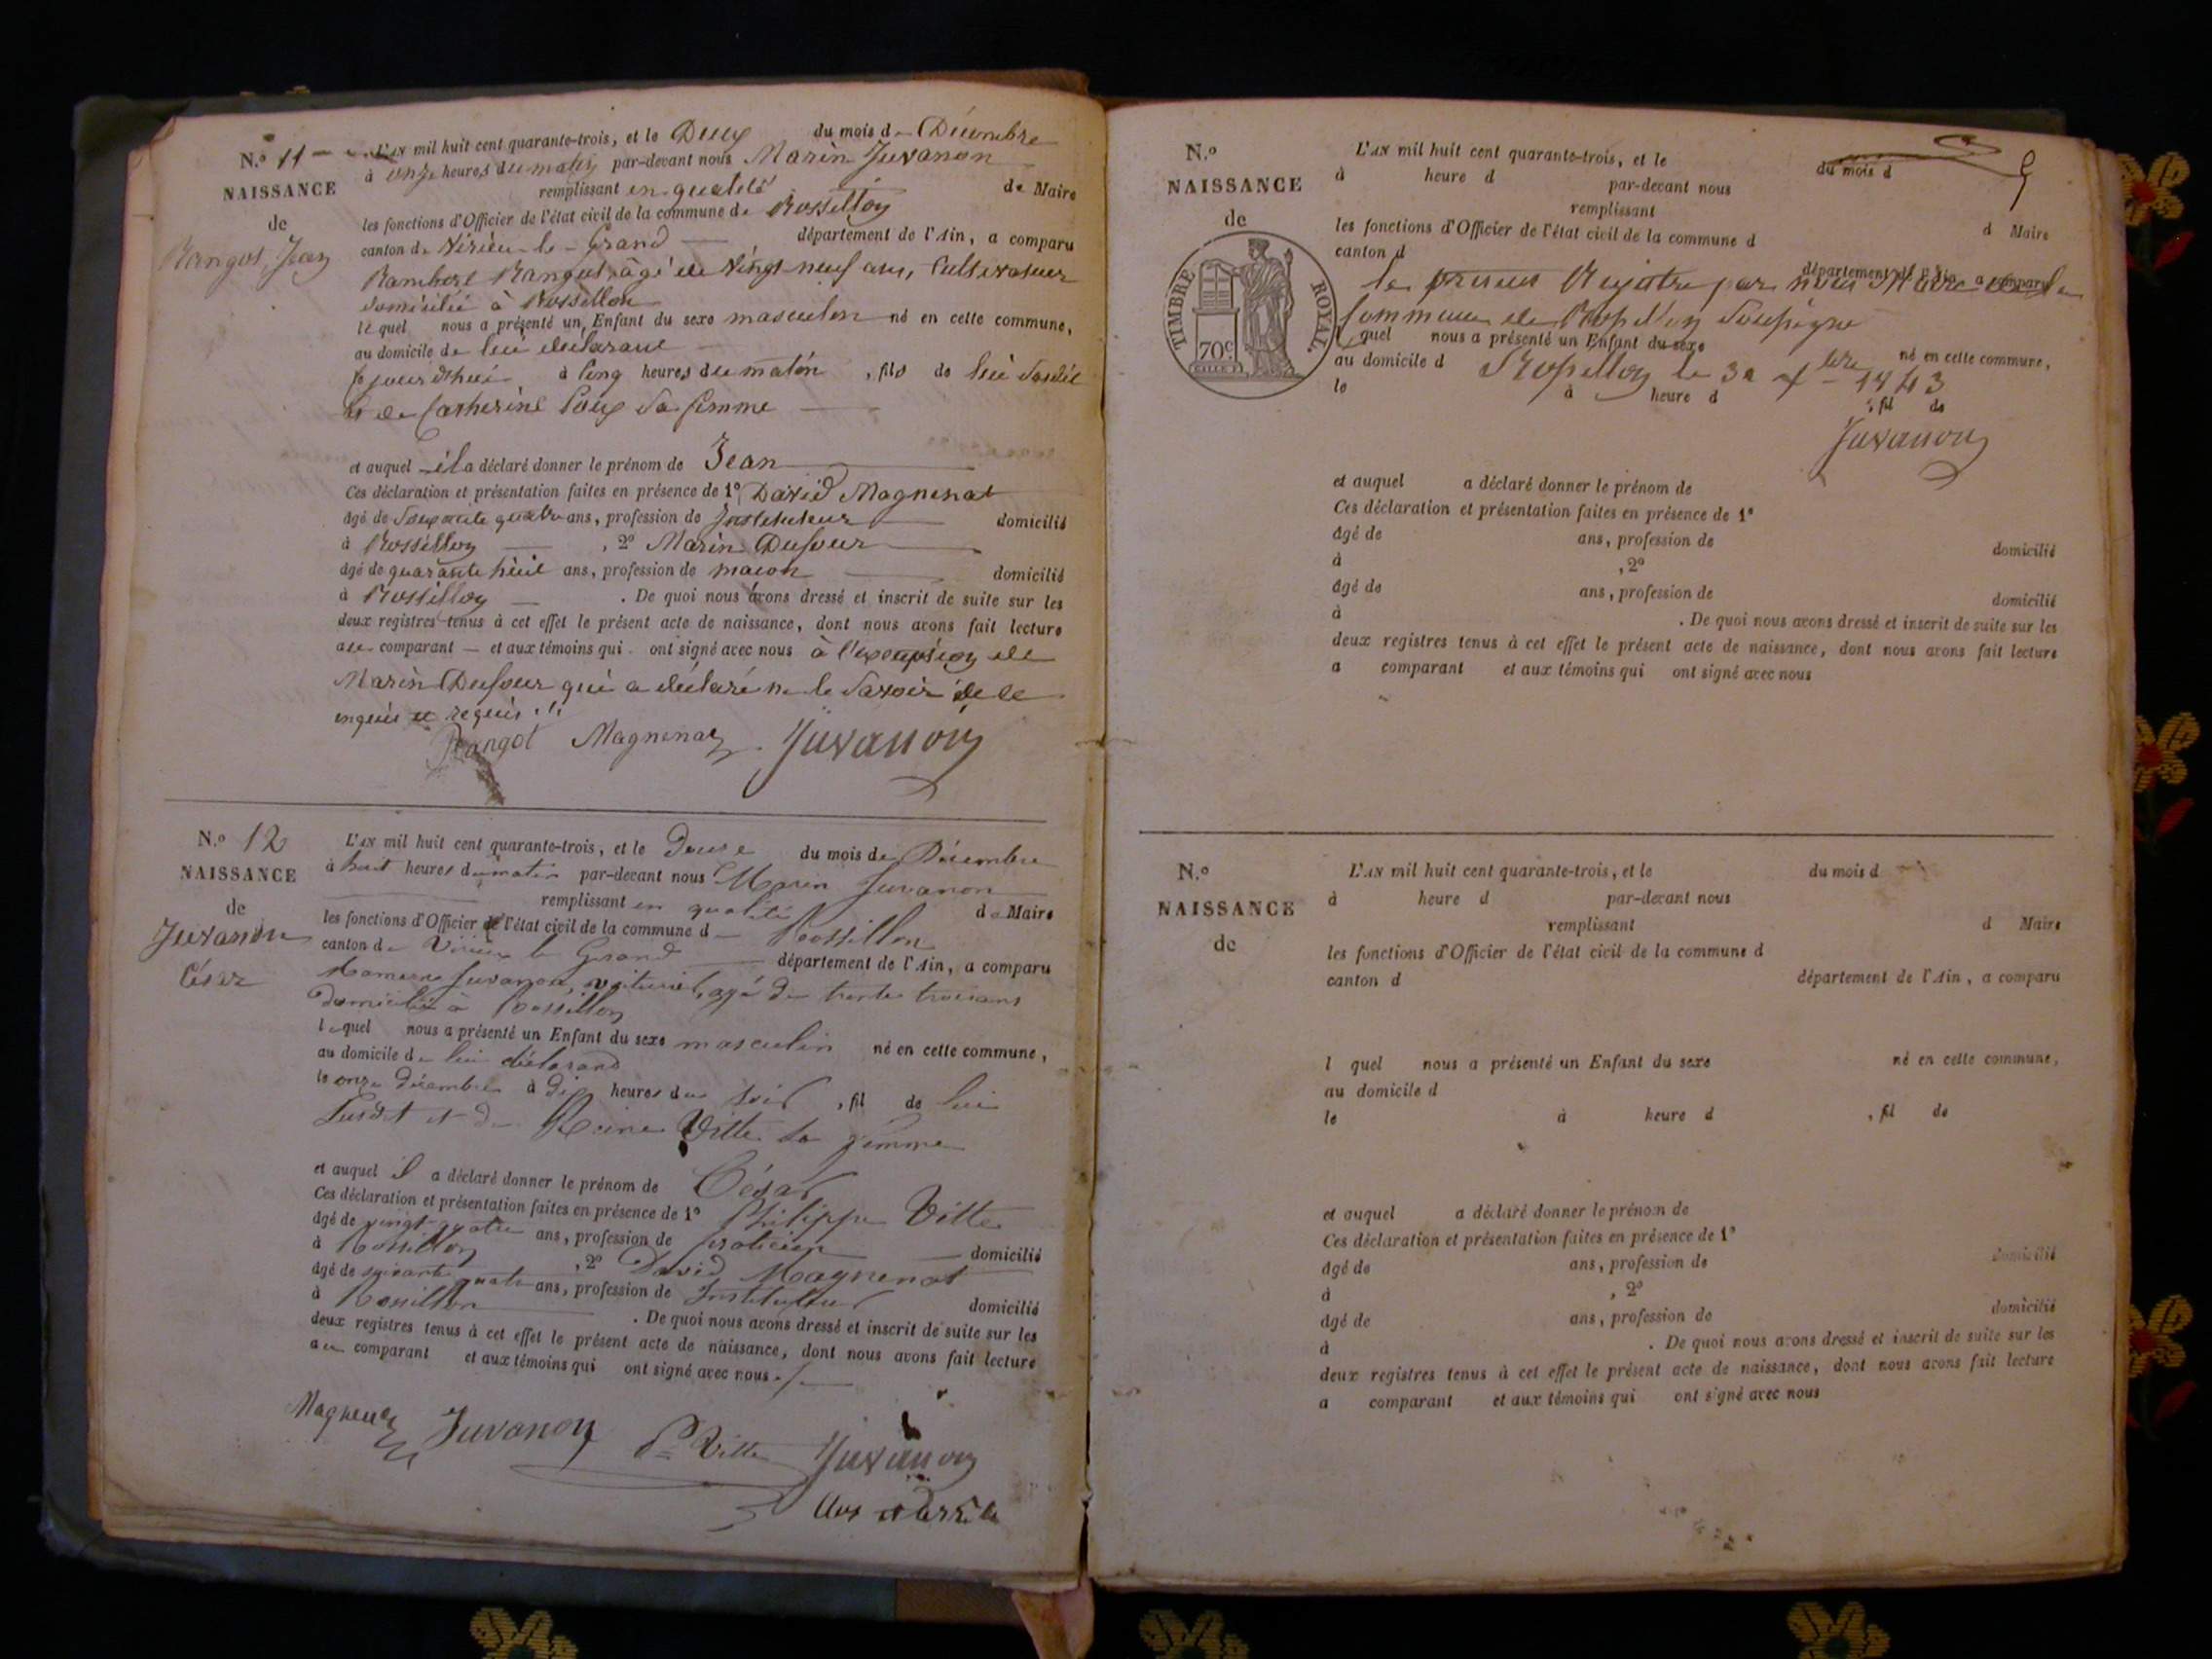 N.º 11
NAISSANCE
de
Rangot Jean
L'AN mil huit cent quarante-trois, et le Deux du mois de Décembre
à onze heures du matin par-devant nous Marin Juvanon
remplissant en qualité de Maire
les fonctions d'Officier de l'état civil de la commune de Rossillon
canton de Virieu-le-Grand département de l'Ain, a comparu
Rambert Rangot âgé de vingt neuf ans, Cultivateur
domicilié à Rossillon
lequel nous a présenté un Enfant du sexe masculin né en cette commune,
au domicile de lui déclarant
jourdhui à cinq heures du matin, fils de lui susdit
et de Catherine Roux sa femme
et auquel il a déclaré donner le prénom de Jean
Ces déclaration et présentation faites en présence de 1º David Magnenat
âgé de soixante quatre ans, profession de Instituteur domicilié
à Rossillon, 2º Marin Dufour
âgé de quarante huit ans, profession de macon domicilié
à Rossillon. De quoi nous avons dressé et inscrit de suite sur les
deux registres tenus à cet effet le présent acte de naissance, dont nous avons fait lecture
au comparant et aux témoins qui ont signé avec nous à l'exception de
Marin Dufour qui a déclaré ne le savoir de ce
enquis et requis
Rangot Magnenat Juvanon
N.º 12
NAISSANCE
de
Juvanon
César
L'AN mil huit cent quarante-trois, et le Douze du mois de Décembre
à huit heures du matin par-devant nous Marin Juvanon
remplissant en qualité de Maire
les fonctions d'Officier de l'état civil de la commune de Rossillon
canton de Virieu le Grand département de l'Ain, a comparu
Juvanon, voiturier, agé de trente trois ans
domicilié à Rossillon
lequel nous a présenté un Enfant du sexe masculin né en cette commune,
au domicile de lui déclarand
le onze décembre à dix heures du soir, fil de lui
susdit et de Reine Ville sa femme
et auquel il a déclaré donner le prénom de César
Ces déclaration et présentation faites en présence de 1º Philippe Ville
âgé de vingt-quatre ans, profession de praticien domicilié
à Rossillon, 2º David Magnenat
âgé de soixante quatre ans, profession de Instituteur domicilié
à Rossillon. De quoi nous avons dressé et inscrit de suite sur les
deux registres tenus à cet effet le présent acte de naissance, dont nous avons fait lecture
au comparant et aux témoins qui ont signé avec nous.
Magnenat Juvanon Ville Juvanon
N.º
NAISSANCE
de
TIMBRE ROYAL.
70c
L'AN mil huit cent quarante-trois, et le du mois d
à heure d par-devant nous
remplissant d Maire
les fonctions d'Officier de l'état civil de la commune d
canton d département de l'Ain, a comparu
le Registre par nous Maire de la
Commune de Rossillon Soussigné
l quel nous a présenté un Enfant du sexe né en cette commune,
au domicile d
Rossillon le 1843
le à heure d, fil de
Juvanon
et auquel a déclaré donner le prénom de
Ces déclaration et présentation faites en présence de 1º
âgé de ans, profession de domicilié
à , 2º
âgé de ans, profession de domicilié
à . De quoi nous avons dressé et inscrit de suite sur les
deux registres tenus à cet effet le présent acte de naissance, dont nous avons fait lecture
a comparant et aux témoins qui ont signé avec nous
N.º
NAISSANCE
de
L'AN mil huit cent quarante-trois, et le du mois d
à heure d par-devant nous
remplissant d Maire
les fonctions d'Officier de l'état civil de la commune d
canton d département de l'Ain, a comparu
l quel nous a présenté un Enfant du sexe né en cette commune,
au domicile d
le à heure d, fil de
et auquel a déclaré donner le prénom de
Ces déclaration et présentation faites en présence de 1º
âgé de ans, profession de domicilié
à , 2º
âgé de ans, profession de domicilié
à . De quoi nous avons dressé et inscrit de suite sur les
deux registres tenus à cet effet le présent acte de naissance, dont nous avons fait lecture
a comparant et aux témoins qui ont signé avec nous